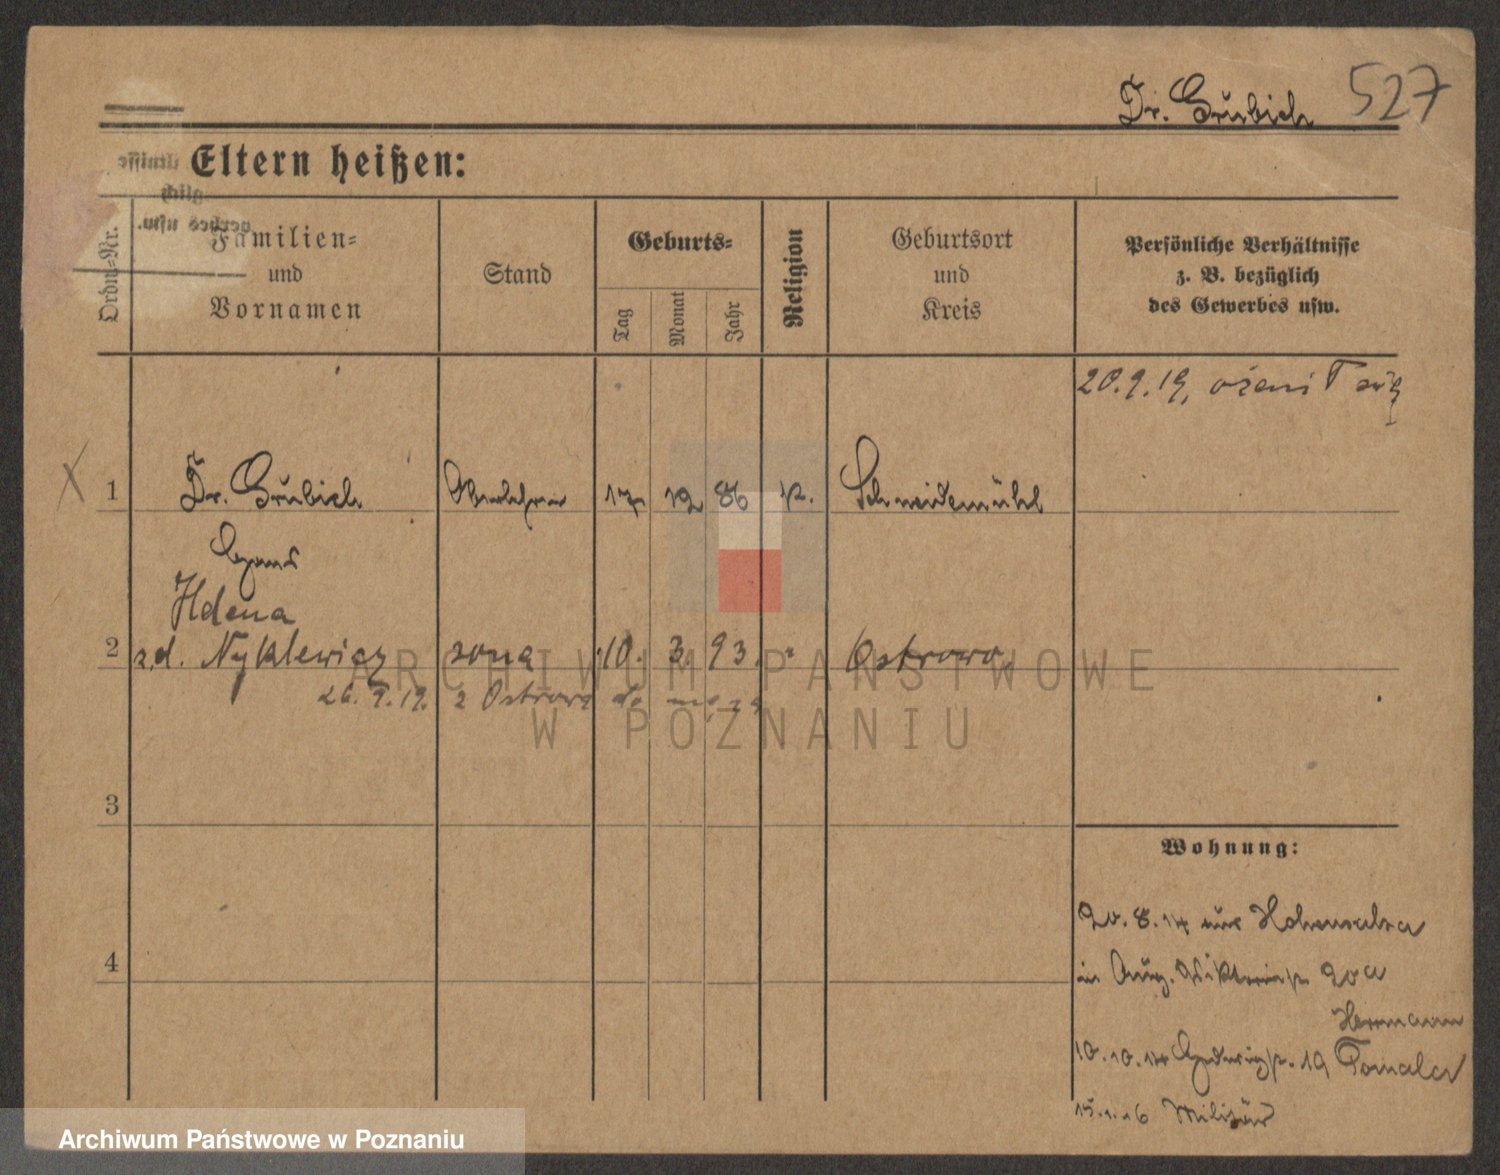 Dr. Grubich 527
Eltern heißen:
Ordn.-Nr.
Familien-
und
Vornamen
Stand
Geburts-
Tag
Monat
Jahr
Religion
Geburtsort
und
Kreis
Persönliche Verhältnisse
z. B. bezüglich
des Gewerbes usw.
20.9.19, ożenił się
1 Dr. Grubich Oberlehrer 17 12 86 k. Schneidemühl
Hans
Helena
2 z d. Nyklewicz żona 10. 3. 93. " Ostrowo
26.9.19. z Ostrowa do męża
3
4
Wohnung:
20.8.14 aus Hohensalza
in Aug. Viktoriastr 20a
Herrmann
10.10.14 Hedwigstr. 19 Tomala
15.1.16 Militär
ARCHIWUM PAŃSTWOWE
W POZNANIU
Archiwum Państwowe w Poznaniu